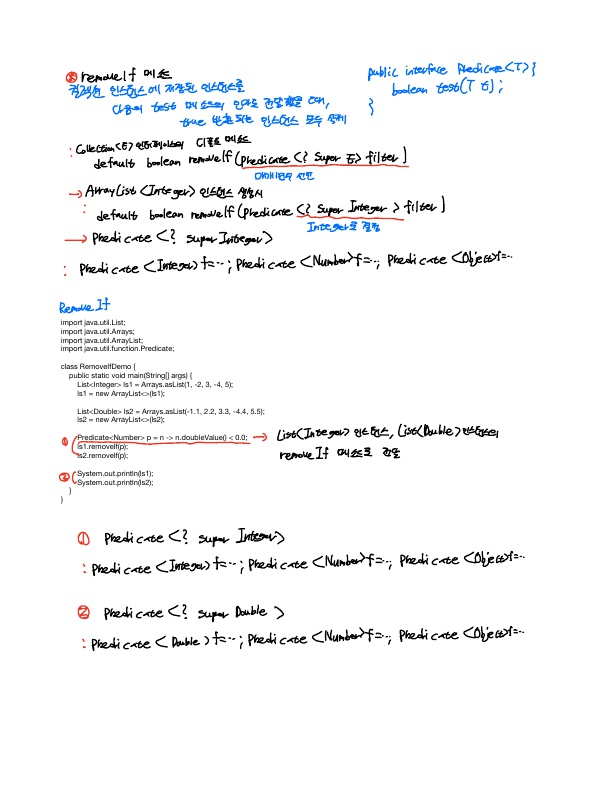 ※ removeIf 메소드
컬렉션 인스턴스에 저장된 인스턴스를
다음의 test 메소드의 인자로 전달했을 때,
true 반환되는 인스턴스 모두 삭제
public interface Predicate<T> {
boolean test(T t);
}
: Collection<E> 인터페이스의 디폴트 메소드
default boolean removeIf(Predicate<? super E> filter)
매개변수 선언
→ ArrayList<Integer> 인스턴스 생성시
: default boolean removeIf(Predicate<? super Integer> filter)
Integer로 결정
→ Predicate<? super Integer>
: Predicate<Integer> f=…; Predicate<Number> f=…; Predicate<Object> f=…
Remove If
import java.util.List;
import java.util.Arrays;
import java.util.ArrayList;
import java.util.function.Predicate;
class RemoveIfDemo {
public static void main(String[] args) {
List<Integer> ls1 = Arrays.asList(1, -2, 3, -4, 5);
ls1 = new ArrayList<>(ls1);
List<Double> ls2 = Arrays.asList(-1.1, 2.2, 3.3, -4.4, 5.5);
ls2 = new ArrayList<>(ls2);
① Predicate<Number> p = n -> n.doubleValue() < 0.0; → List<Integer> 인스턴스, List<Double> 인스턴스의
ls1.removeIf(p); removeIf 메소드로 전달
ls2.removeIf(p);
② System.out.println(ls1);
System.out.println(ls2);
}
}
① Predicate<? super Integer>
: Predicate<Integer> f=…; Predicate<Number> f=…; Predicate<Object> f=…
② Predicate<? super Double>
: Predicate<Double> f=…; Predicate<Number> f=…; Predicate<Object> f=…